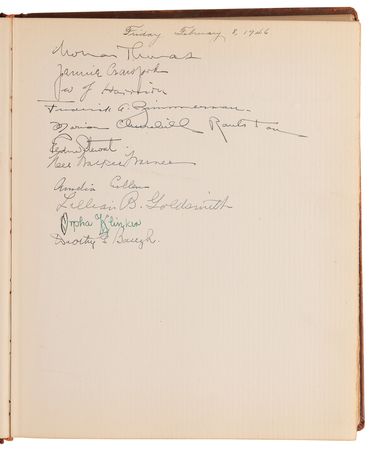 Friday February 8, 1946
Norman Thomas
Jannie Crawford
J W J Harrison
Frederick G. Zimmerman.
Marian Churchill
Stewart
Nell Walker Warner
Amelia Collins
Lillian B. Goldsmith
Orpha Klinker
Dorothy F Baugh.